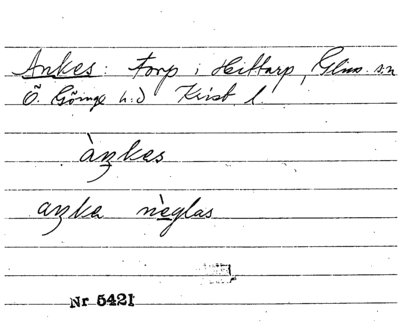 Ankes: torp i Hittarp, Glims. sn
Ö. Göinge h:d Krist l.
àŋkes
aŋka nèglas
Nr 5421